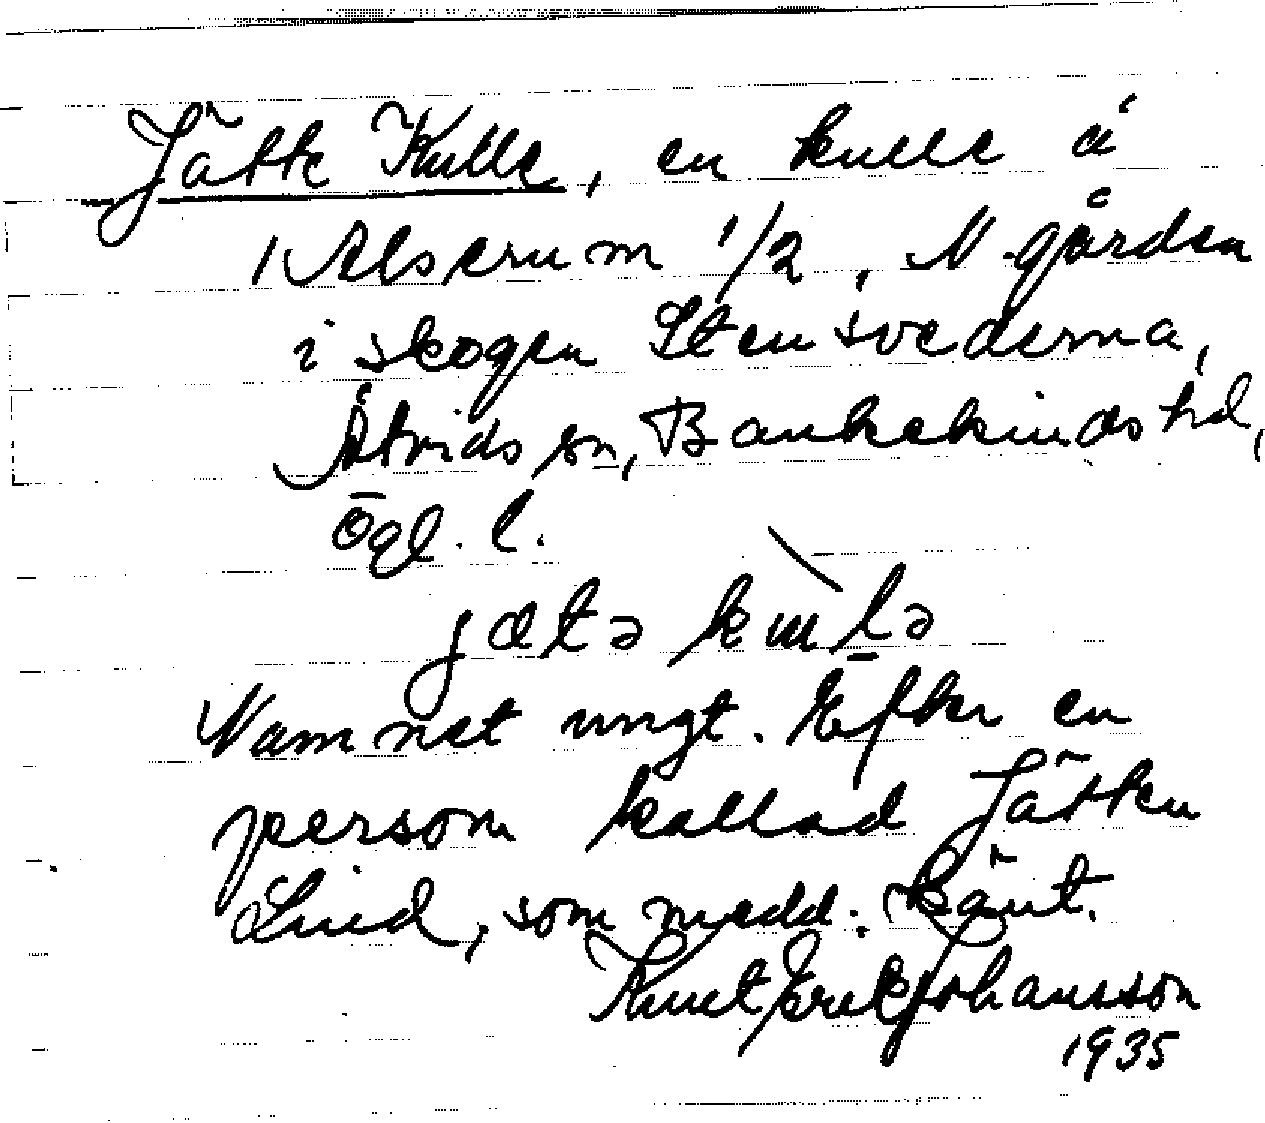 Jätte Kulle, en kulle å
Alserum 1/2, N-gården
i skogen Stensvederna,
Åtvids sn, Bankekinds hd,
Ögl. l.
jætə kulə
Namnet ungt. Efter en
person kallad Jätten
Lind, som medd. känt.
Knut Erik Johansson
1935